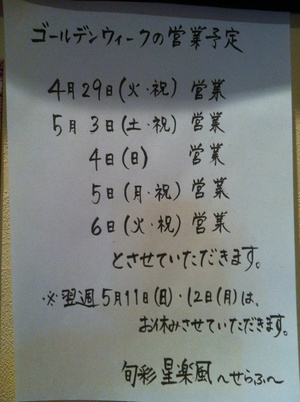 ゴールデンウィークの営業予定
4月29日(火・祝) 営業
5月3日(土・祝) 営業
4日(日) 営業
5日(月・祝) 営業
6日(火・祝) 営業
とさせていただきます。
※翌週5月11日(日)・12日(月)は、
お休みさせていただきます。
旬彩 星楽風 〜せらふ〜